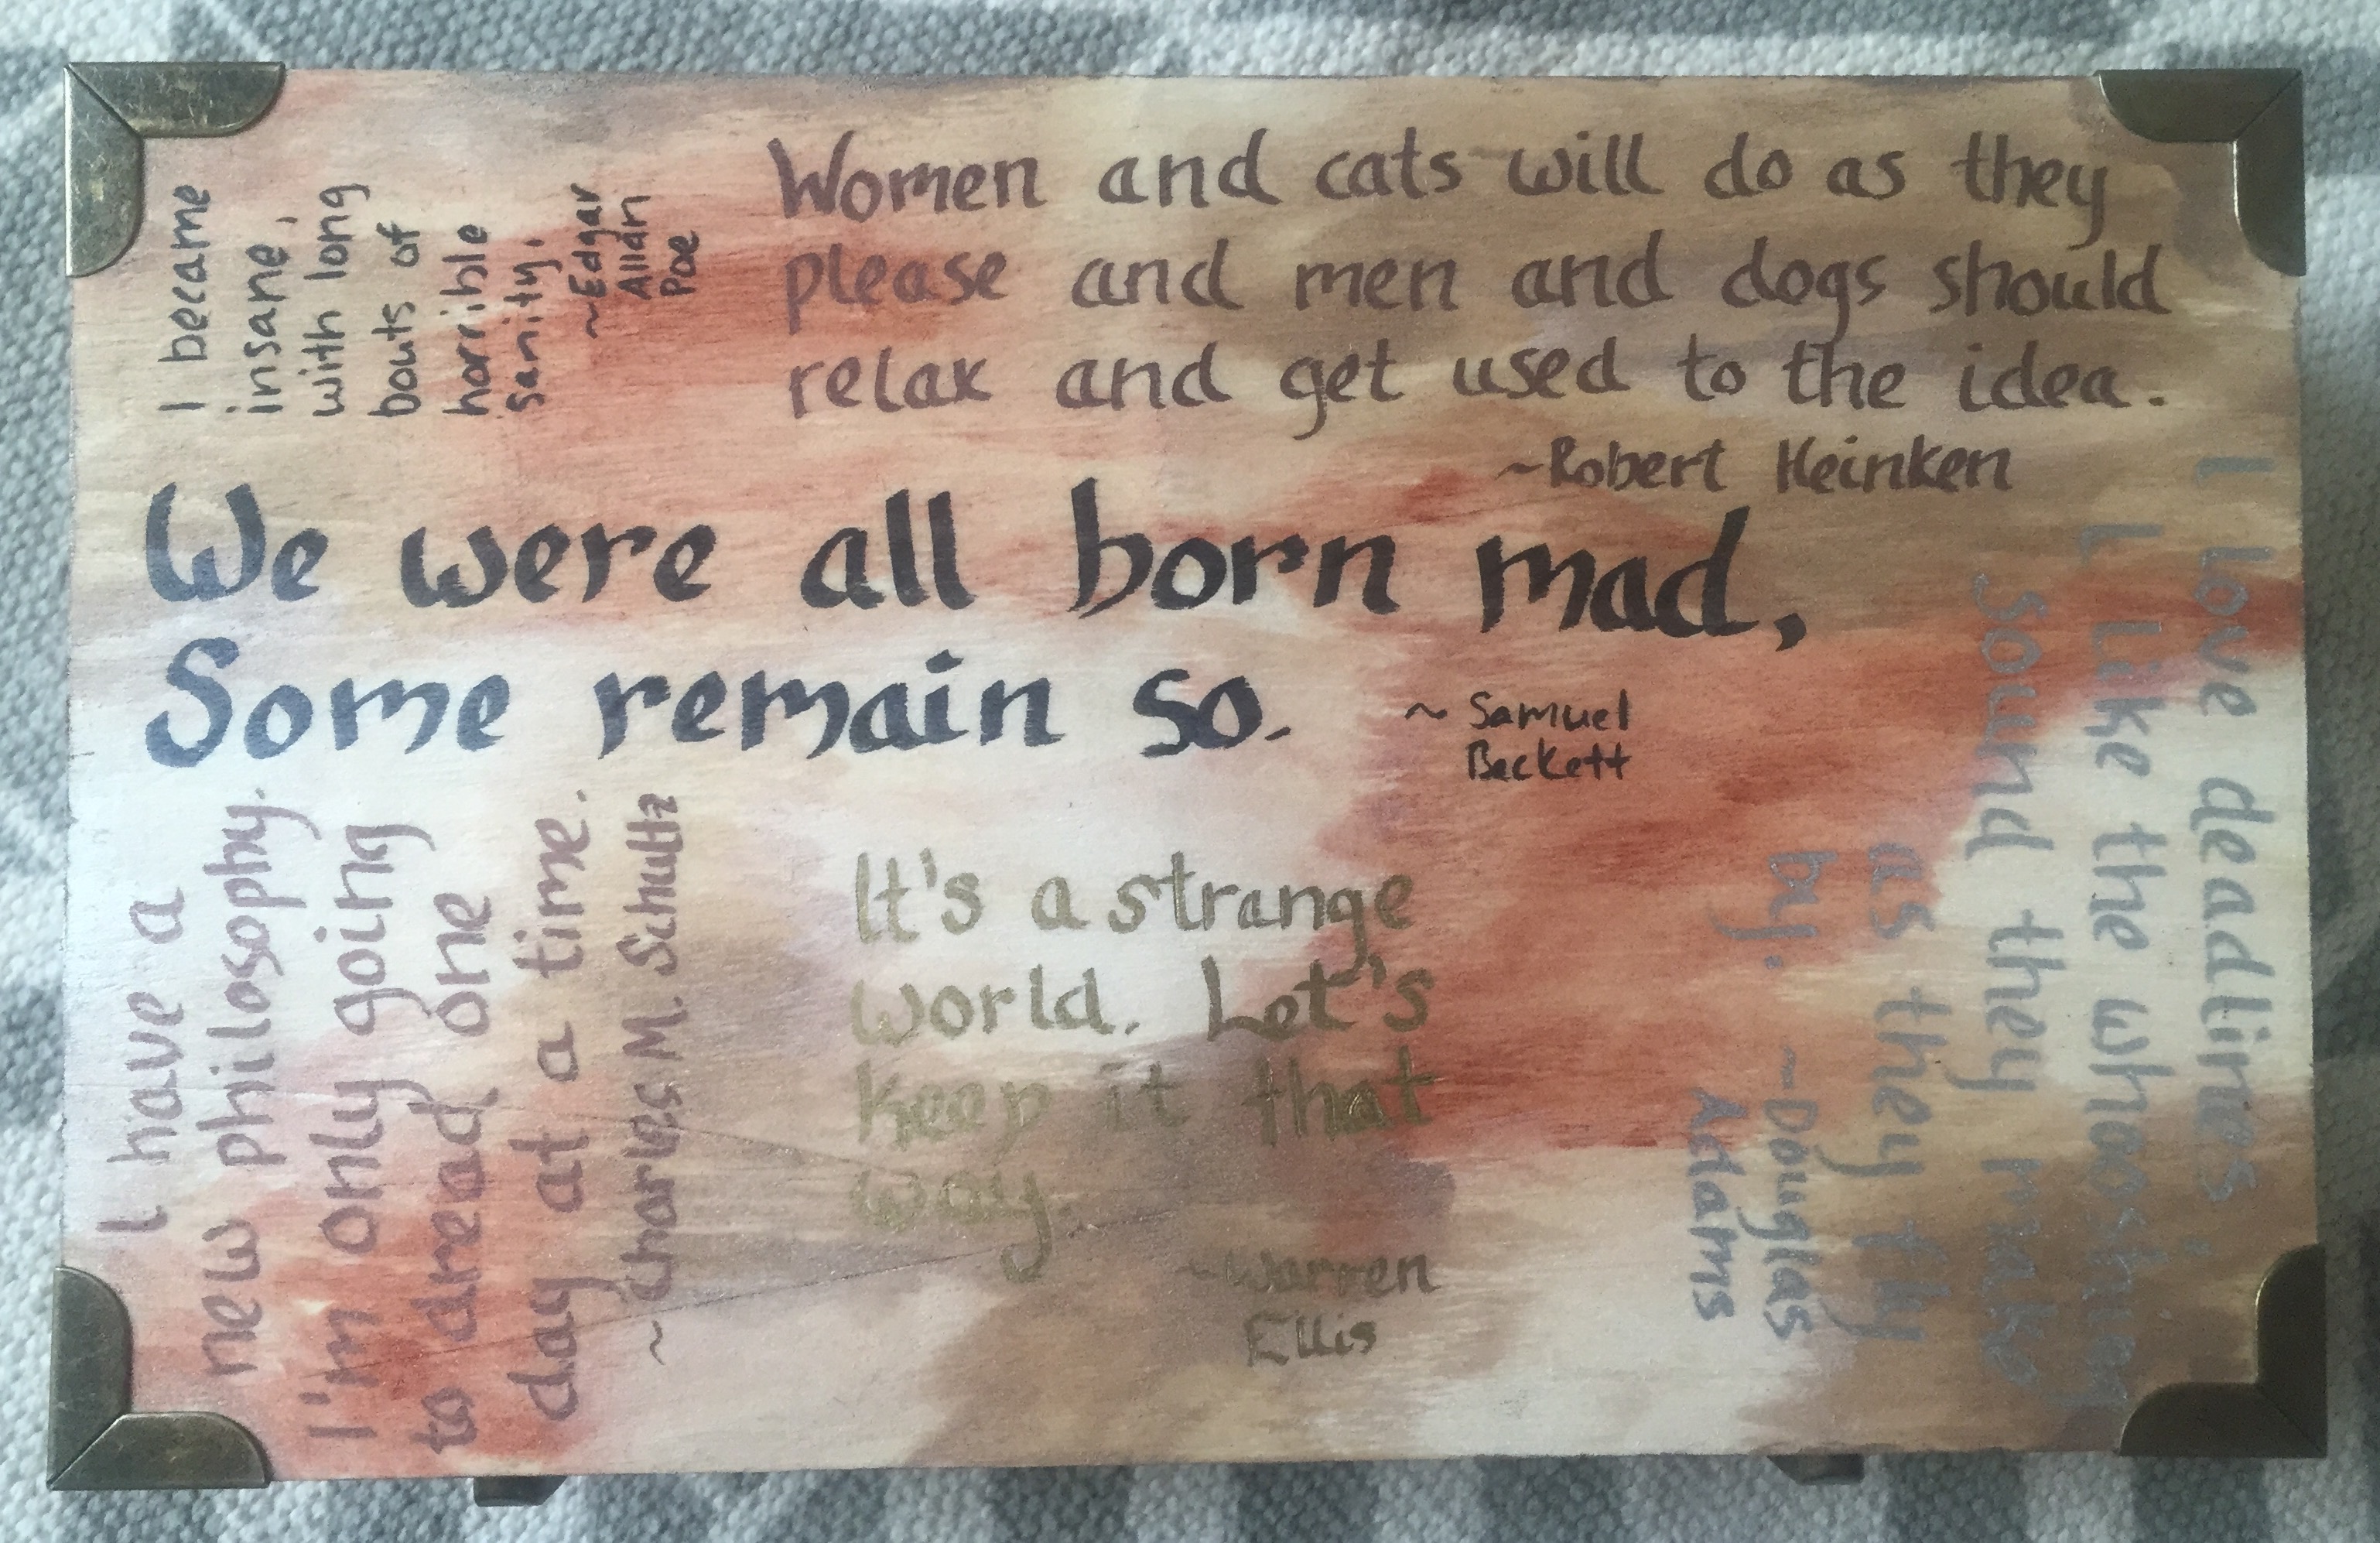 I became
insane,
with long
bouts of
horrible
sanity.
~Edgar
Allan
Poe
Women and cats will do as they
please and men and dogs should
relax and get used to the idea.
~Robert Heinken
We were all born mad,
Some remain so.
~ Samuel
Beckett
I have a
new philosophy.
I'm only going
to dread one
day at a time.
~Charles M. Schultz
It's a strange
world. Let's
keep it that
way.
~Warren
Ellis
I love deadlines.
I like the whooshing
sound they make
as they fly
by.
~Douglas
Adams